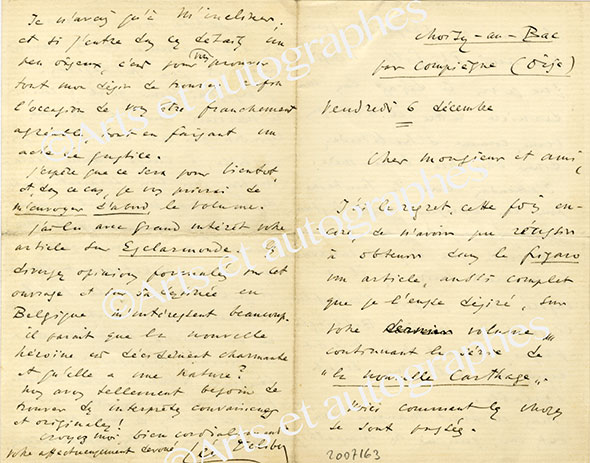 Choisy-au-Bac
par Compiègne (Oise)
Vendredi 6 décembre
Cher Monsieur et ami,
J'ai le regret, cette fois, en-
core de n'avoir pu réussir
à obtenir dans le Figaro
un article, aussi complet
que je l'eusse désiré, sur
votre dernier volume
continuant la série de
"la nouvelle Carthage".
Voici comment les choses
se sont passées.
2007163
Je n'avais qu'à m'incliner,
et si j'entre dans ces détails un
peu oiseux, c'est pour vous prouver
tout mon désir de trouver enfin
l'occasion de vous être franchement
agréable, tout en faisant un
acte de justice.
J'espère que ce sera pour bientôt,
et, dans ce cas, je vous prierai de
m'envoyer d'abord le volume.
J'ai lu avec grand intérêt votre
article sur Esclarmonde. Les
diverses opinions formulées sur cet
ouvrage et sur sa destinée en
Belgique m'intéressent beaucoup.
Il paraît que la nouvelle
héroïne est décidément charmante
et qu'elle a une nature?
Nous avons tellement besoin de
trouver des interprètes convaincus
et originales!
Croyez-moi, bien cordialement
votre affectueusement dévoué
Léo Delibes
©Arts et autographes
©Arts et autographes
©Arts et autographes
©Arts et autographes